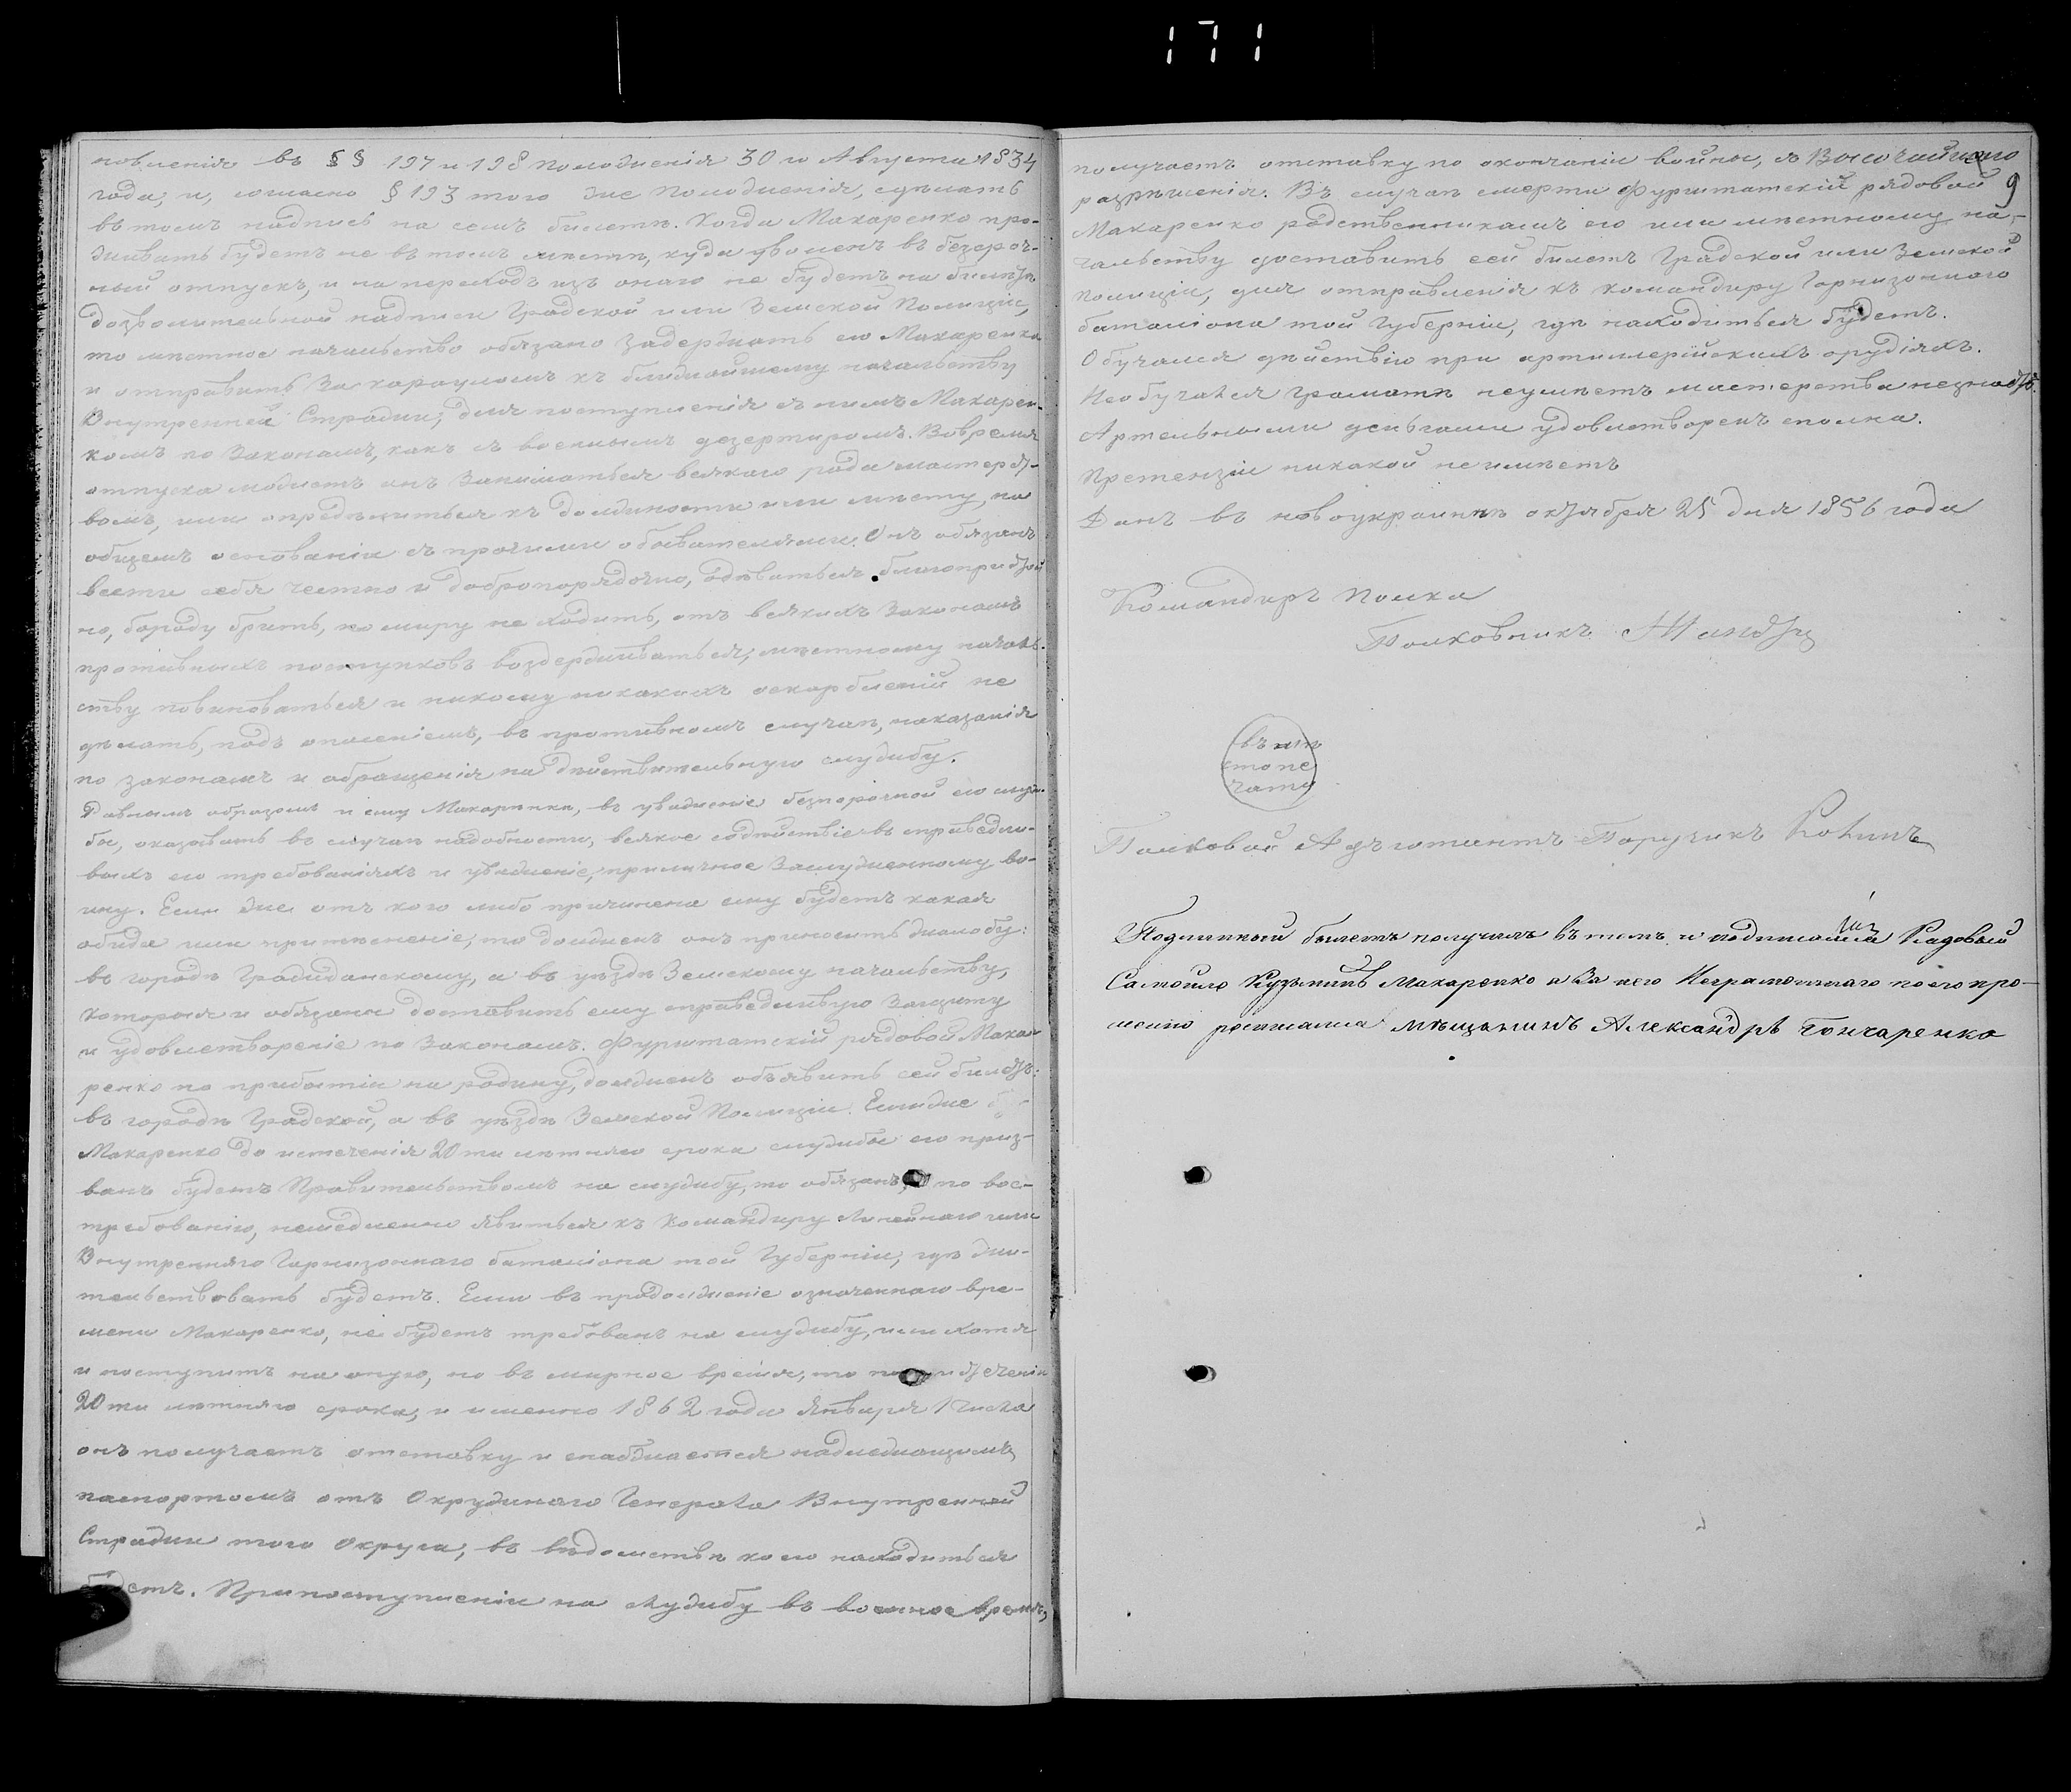 171
новленія въ §§ 197 и 198 Положенія 30 го Августа 1834
года, и, согласно § 193 того же Положенія, сдѣлать
въ томъ надпись на семъ билетѣ. Когда Макаренко про-
живать будетъ не въ томъ мѣстѣ, куда уволенъ въ безсроч-
ный отпускъ, и на переходъ изъ онаго не будетъ на билетѣ
дозволительной надписи Градской или Земской Полиціи,
то мѣстное начальство обязано задержать его Макаренка
и отправить За карауломъ къ ближайшему начальству
Внутренней Стражи, для поступленія съ нимъ Макарен-
комъ по Законамъ, какъ съ военнымъ дезертиромъ. Во время
отпуска можетъ онъ Заниматься всякаго рода мастерст-
вомъ, или опредѣлиться къ должности или мѣсту, на
общемъ основаніи съ прочими обывателями. Онъ обязанъ
вести себя честно и добропорядочно, одѣваться благопристой
но, бороду брить, по миру не ходить, отъ всякихъ Законамъ
противныхъ поступковъ воздерживаться, мѣстному началь-
ству повиноваться и никому никакихъ оскорбленій не
дѣлать, подъ опасеніемъ, въ противномъ случаѣ, наказанія
по законамъ и обращенія на дѣйствительную службу.
Равнымъ образомъ и ему Макаренка, въ уваженіе безпорочной его служ-
бы, оказывать въ случаѣ надобности, всякое содѣйствіе въ справедли-
выхъ его требованіяхъ и уваженіе, приличное Заслуженному во-
ину. Если же отъ кого либо причинена ему будетъ какая
обида или притѣсненіе, то долженъ онъ приносить жалобу:
въ городѣ Гражданскому, а въ уѣздѣ Земскому начальству,
которыя и обязаны доставить ему справедливую Защиту
и удовлетвореніе по Законамъ. Фурштатскій рядовой Мака-
ренко по прибытіи на родину, долженъ объявить сей билетъ:
въ городѣ Градской, а въ уѣздѣ Земской Полиціи. Если же
Макаренко до истеченія 20 ти лѣтняго срока службы его приз-
ванъ будетъ Правительствомъ на службу, то обязанъ, по вос-
требованію, немедленно явиться къ Командиру Линейнаго или
Внутренняго Гарнизоннаго баталіона той Губерніи, гдѣ жи-
тельствовать будетъ. Если въ продолженіе означеннаго вре-
мени Макаренко, не будетъ требованъ на службу, или хотя
и поступитъ на оную, но въ мирное время, то по истеченіи
20 ти лѣтняго срока, и именно 1862 года Января 1 числа
онъ получаетъ отставку и снабжается надлежащимъ
паспортомъ отъ Окружнаго Генерала Внутренней
Стражи того Округа, въ вѣдомствѣ коего находиться
будетъ. При поступленіи на службу въ военное время,
получаетъ отставку по окончаніи войны, съ Высочайшаго
9
разрѣшенія. Въ случаѣ смерти Фурштатскій рядовой
Макаренко родственникамъ его или мѣстному на-
чальству доставить сей билетъ Градской или Земской
Полиціи, для отправленія къ командиру Гарнизоннаго
баталіона той Губерніи, гдѣ находиться будетъ.
Обучался дѣйствію при артиллерійскихъ орудіяхъ.
Необучался грамотѣ неумѣетъ мастерства незнаетъ.
Артельными деньгами удовлетворенъ сполна.
Претензіи никакой не имѣетъ
Данъ въ новоукраинкѣ октября 25 дня 1856 года
Командиръ полка
Полковникъ
въ мѣ
сто пе
чати
Полковой Адъютантъ Поручикъ
Подлинный билетъ получилъ въ томъ и подписался Рядовый
Самойло Кузьминъ Макаренко а За него Неграмотнаго по его про-
шенію росписался мѣщанинъ Александръ Гончаренко